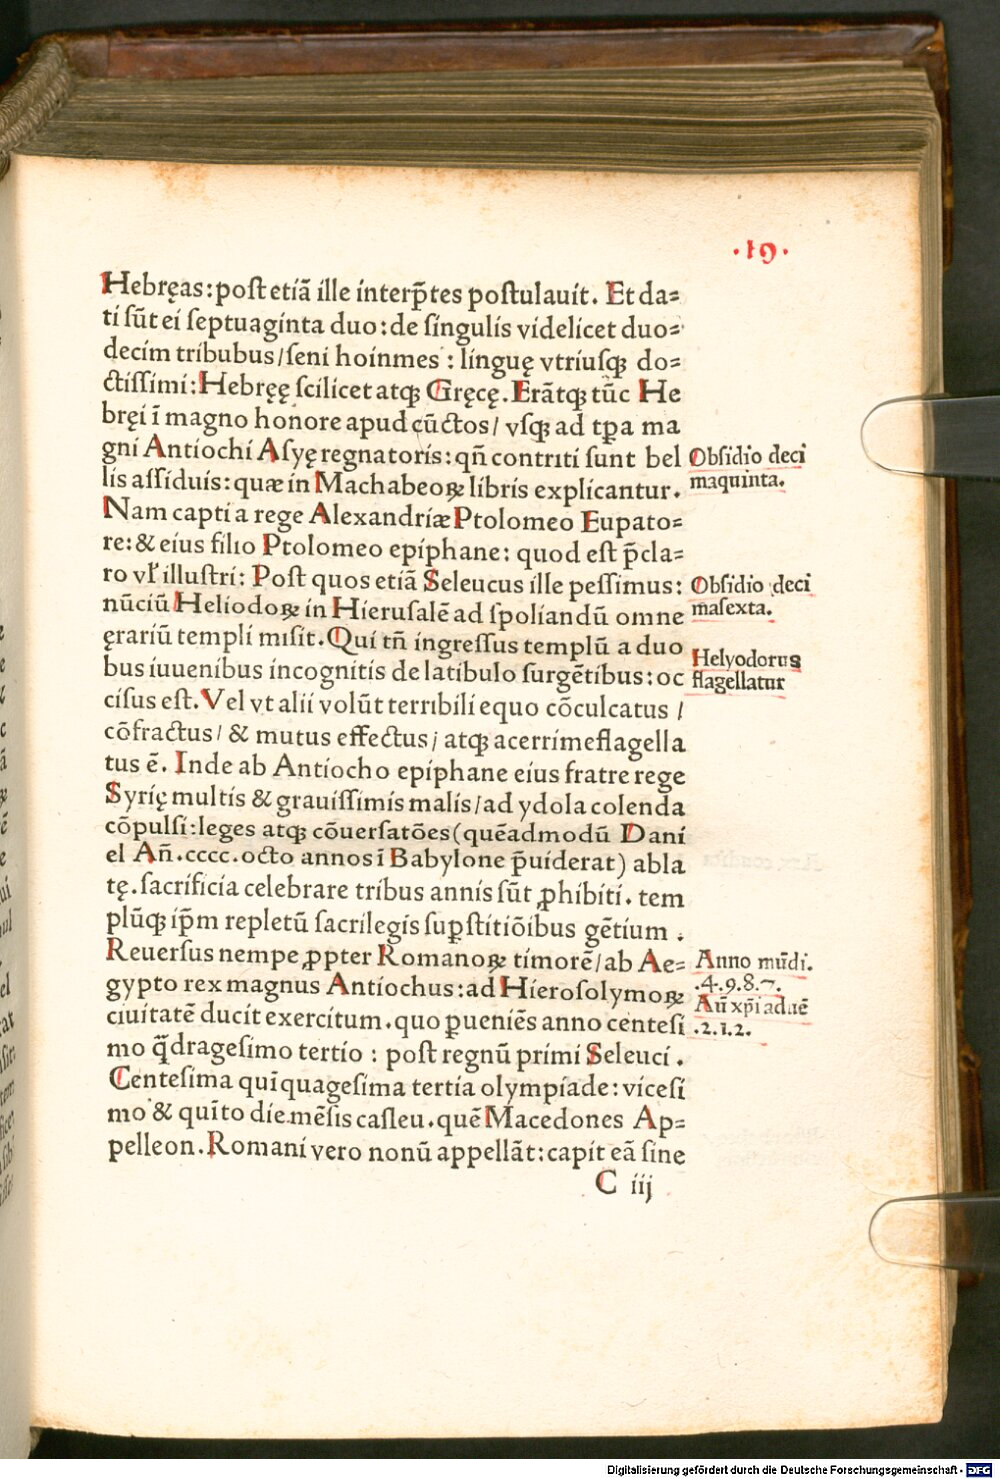 ·19·
Hebręas: post etiã ille interp̃tes postulauit. Et da⸗
ti sũt ei septuaginta duo: de singulis videlicet duo⸗
decim tribubus/ seni hoinmes : linguę vtriusqꝫ do⸗
ctissimi: Hebręę scilicet atqꝫ Gręcę. Erãtqꝫ tũc He
bręi ĩ magno honore apud cũctos/ vsqꝫ ad tꝑa ma
gni Antiochi Asyę regnatoris: qñ contriti sunt bel
lis assiduis: quæ in Machabeoꝝ libris explicantur.
Nam capti a rege Alexandriæ Ptolomeo Eupato⸗
re: & eius filio Ptolomeo epiphane: quod est p̃cla⸗
ro vƚ illustri: Post quos etiã Seleucus ille pessimus:
nũciũ Heliodoꝝ in Hierusalẽ ad spoliandũ omne
ęrariũ templi misit. Qui tñ ingressus templũ a duo
bus iuuenibus incognitis de latibulo surgẽtibus: oc
cisus est. Vel vt alii volũt terribili equo cõculcatus /
cõfractus/ & mutus effectus; atqꝫ acerrime flagella
tus ẽ. Inde ab Antiocho epiphane eius fratre rege
Syrię multis & grauissimis malis/ ad ydola colenda
cõpulsi: leges atqꝫ cõuersatões (quẽadmodũ Dani
el Añ.cccc.octo annos ĩ Babylone p̃uiderat) abla
tę. sacrificia celebrare tribus annis sũt ꝓhibiti. tem
plũqꝫ ip̃m repletũ sacrilegis suꝑstitiõibus gẽtium .
Reuersus nempe ꝓpter Romanoꝝ timorẽ/ ab Ae⸗
gypto rex magnus Antiochus: ad Hierosolymoꝝ
ciuitatẽ ducit exercitum. quo ꝑueniẽs anno centesi
mo q̃dragesimo tertio : post regnũ primi Seleuci .
Centesima quĩquagesima tertia olympiade: vicesi
mo & quĩto die mẽsis casleu. quẽ Macedones Ap⸗
pelleon. Romani vero nonũ appellãt: capit eã sine
C iij
Obsidio deci
maquinta.
Obsidio deci
masexta.
Helyodorus
flagellatur
Anno mũdi.
.4.9.8.7.
Añ xp̃i aduẽ
.2.1.2.
Digitalisierung gefördert durch die Deutsche Forschungsgemeinschaft - DFG